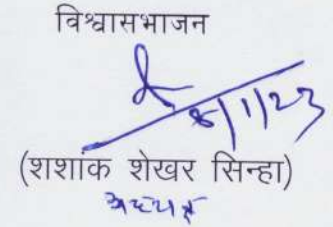 विश्वासभाजन
8/1/23
(शशांक शेखर सिन्हा)
अध्यक्ष